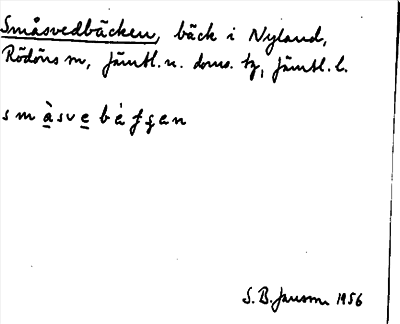 Småsvedbäcken, bäck i Nyland,
Rödöns sn, Jämtl. n. doms. tg, Jämtl. l.
s m à s v e b ä̀ f ç e n
S. B. Janson 1956